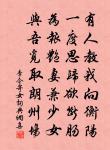 有人教我向衡陽
一度思歸欲斷腸
為報艷妻兼少女
與吾覓取朗州場
李令寄女詞典網集